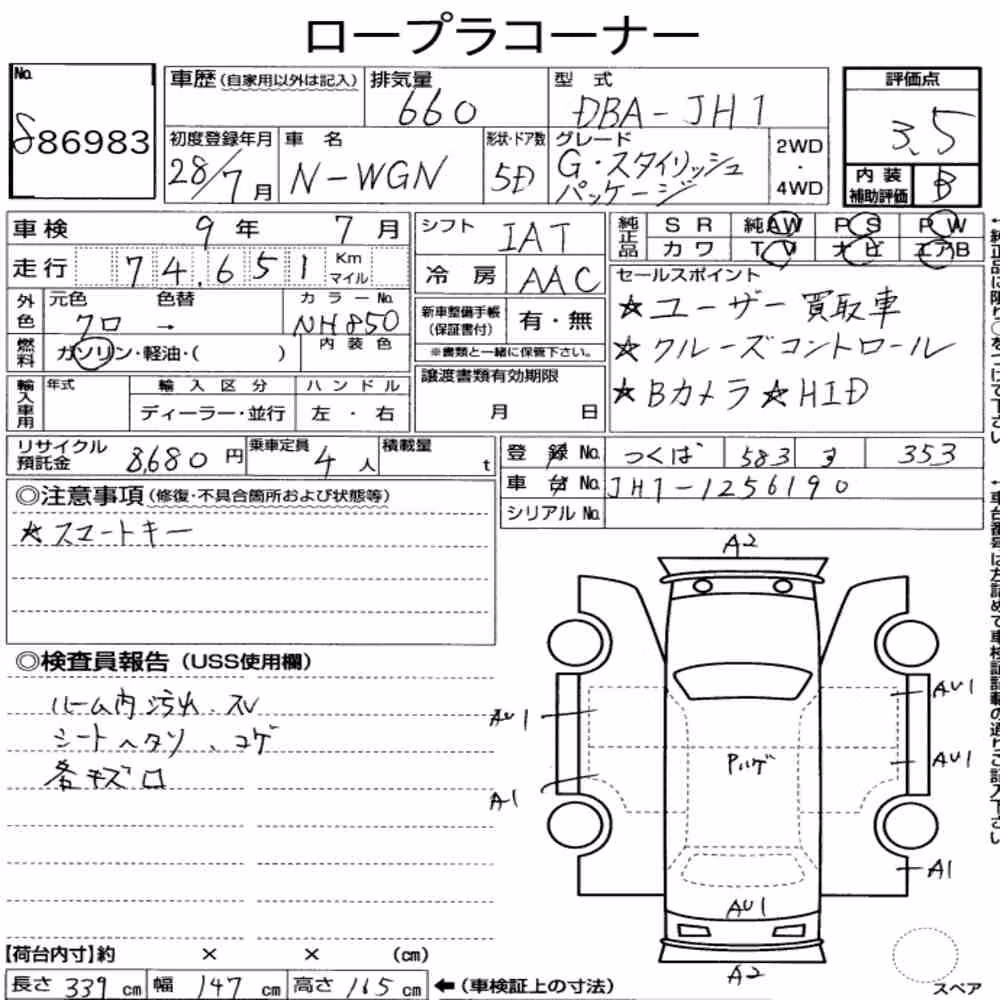 ロープラコーナー
No. 886983
車歴(自家用以外は記入)
排気量 660
型式 DBA-JH1
評価点 3.5
内装補助評価 B
初度登録年月 28/7月
車名 N-WGN
形状・ドア数 5D
グレード G・スタイリッシュパッケージ
2WD・4WD
車検 9年 7月
シフト IAT
純正品 SR 純AW PS PW
カワ TV ナビ エアB
走行 74,651 Km マイル
冷房 AAC
セールスポイント
★ユーザー買取車
★クルーズコントロール
★Bカメラ★HID
外色 元色 クロ → 色替 カラーNo. NH850
新車整備手帳(保証書付) 有・無
※書類と一緒に保管下さい。
燃料 ガソリン・軽油・( )
内装色
譲渡書類有効期限
月 日
輸入車用 年式 輸入区分 ハンドル
ディーラー・並行 左・右
リサイクル預託金 8,680円
乗車定員 4人
積載量 t
登録No. つくば 583 す 353
車台No. JH1-1256190
シリアルNo.
◎注意事項(修復・不具合箇所および状態等)
★スマートキー
◎検査員報告(USS使用欄)
ルーム内汚れ・スレ
シートヘタリ、コゲ
各キズロ
A2
AU1
AU1
AU1
Pハゲ
A1
A1
AU1
A2
【荷台内寸】約 × × (cm)
長さ 339 cm 幅 147 cm 高さ 165 cm ←(車検証上の寸法)
スペア